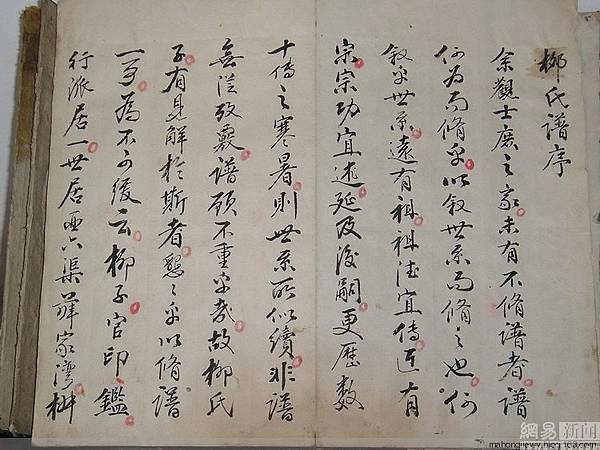 柳氏譜序
余觀士庶之家未有不脩譜者譜
何為而脩乎以叙世系而脩之也何
叙乎世系遠有祖祖德宜傳近有
宗宗功宜述延及後嗣更歷數
十傳之寒暑則世系所似續非譜
無從攷覈譜顧不重乎哉故柳氏
子有見解於斯者懇々乎以脩譜
一事為不可緩云柳子官印鑑
行派居一世居西六渠薛家灣
網易新闻